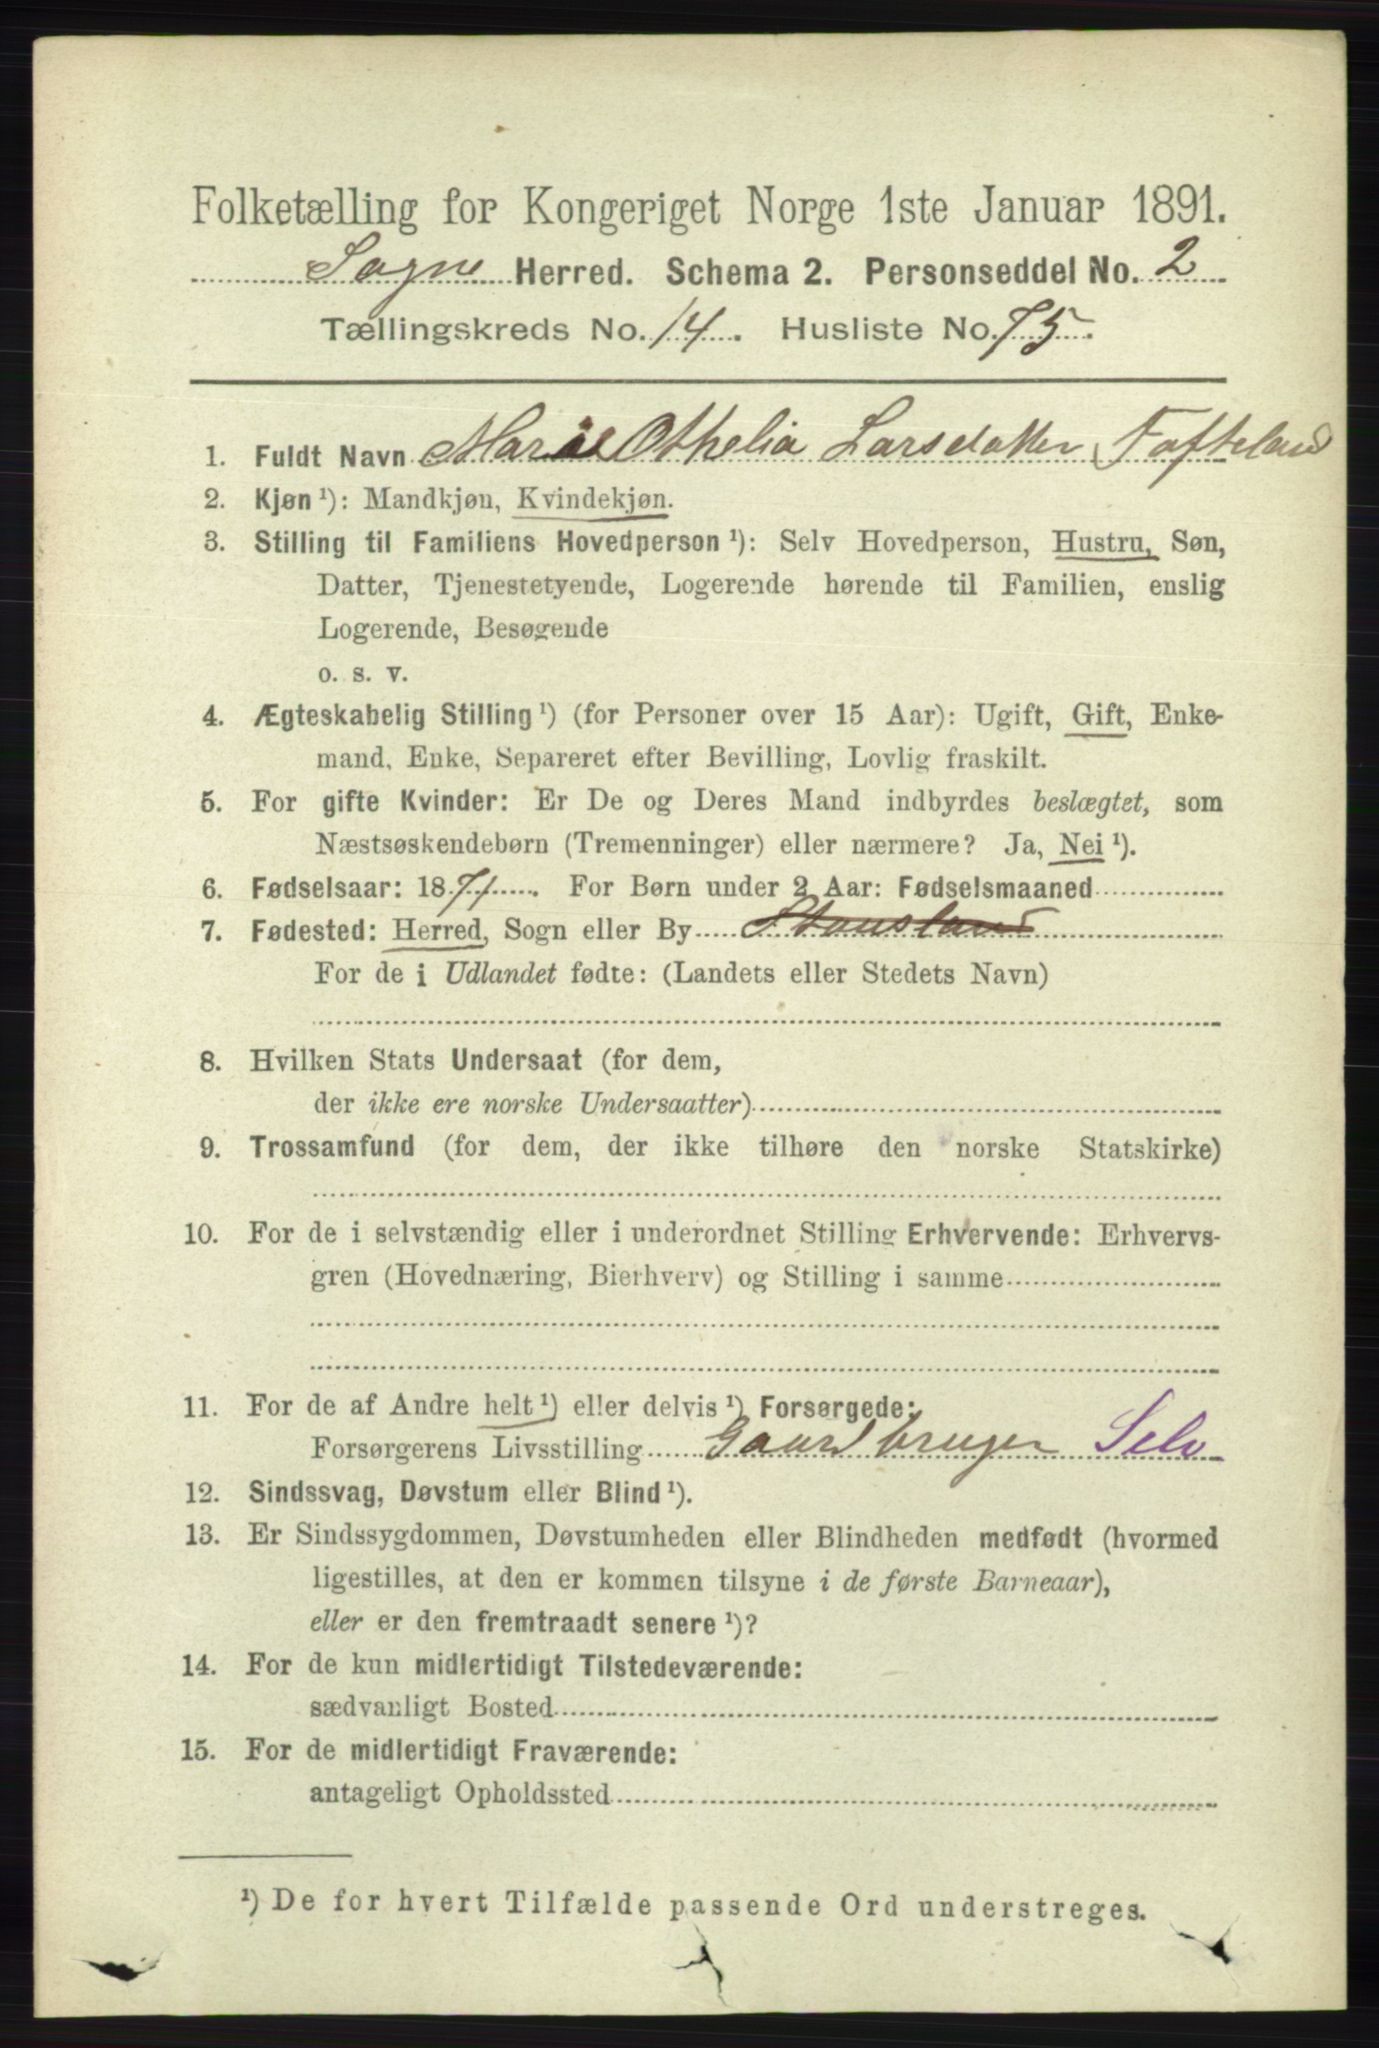 Folketælling for Kongeriget Norge 1ste Januar 1891.
Søgne Herred. Schema 2. Personseddel No. 2
Tællingskreds No. 14. Husliste No. 75.
1. Fuldt Navn Marie Othelia Larsdatter Tofteland
2. Kjøn ¹): Mandkjøn, Kvindekjøn.
3. Stilling til Familiens Hovedperson ¹): Selv Hovedperson, Hustru, Søn,
Datter, Tjenestetyende, Logerende hørende til Familien, enslig
Logerende, Besøgende
o. s. v.
4. Ægteskabelig Stilling ¹) (for Personer over 15 Aar): Ugift, Gift, Enke-
mand, Enke, Separeret efter Bevilling, Lovlig fraskilt.
5. For gifte Kvinder: Er De og Deres Mand indbyrdes beslægtet, som
Næstsøskendebørn (Tremenninger) eller nærmere? Ja, Nei ¹).
6. Fødselsaar: 1871. For Børn under 2 Aar: Fødselsmaaned
7. Fødested: Herred, Sogn eller By Stousland
For de i Udlandet fødte: (Landets eller Stedets Navn)
8. Hvilken Stats Undersaat (for dem,
der ikke ere norske Undersaatter)
9. Trossamfund (for dem, der ikke tilhøre den norske Statskirke)
10. For de i selvstændig eller i underordnet Stilling Erhvervende: Erhvervs-
gren (Hovednæring, Bierhverv) og Stilling i samme
11. For de af Andre helt ¹) eller delvis ¹) Forsørgede:
Forsørgerens Livsstilling Gaardbruger Selv
12. Sindssvag, Døvstum eller Blind ¹).
13. Er Sindssygdommen, Døvstumheden eller Blindheden medfødt (hvormed
ligestilles, at den er kommen tilsyne i de første Barneaar),
eller er den fremtraadt senere ¹)?
14. For de kun midlertidigt Tilstedeværende:
sædvanligt Bosted
15. For de midlertidigt Fraværende:
antageligt Opholdssted
¹) De for hvert Tilfælde passende Ord understreges.